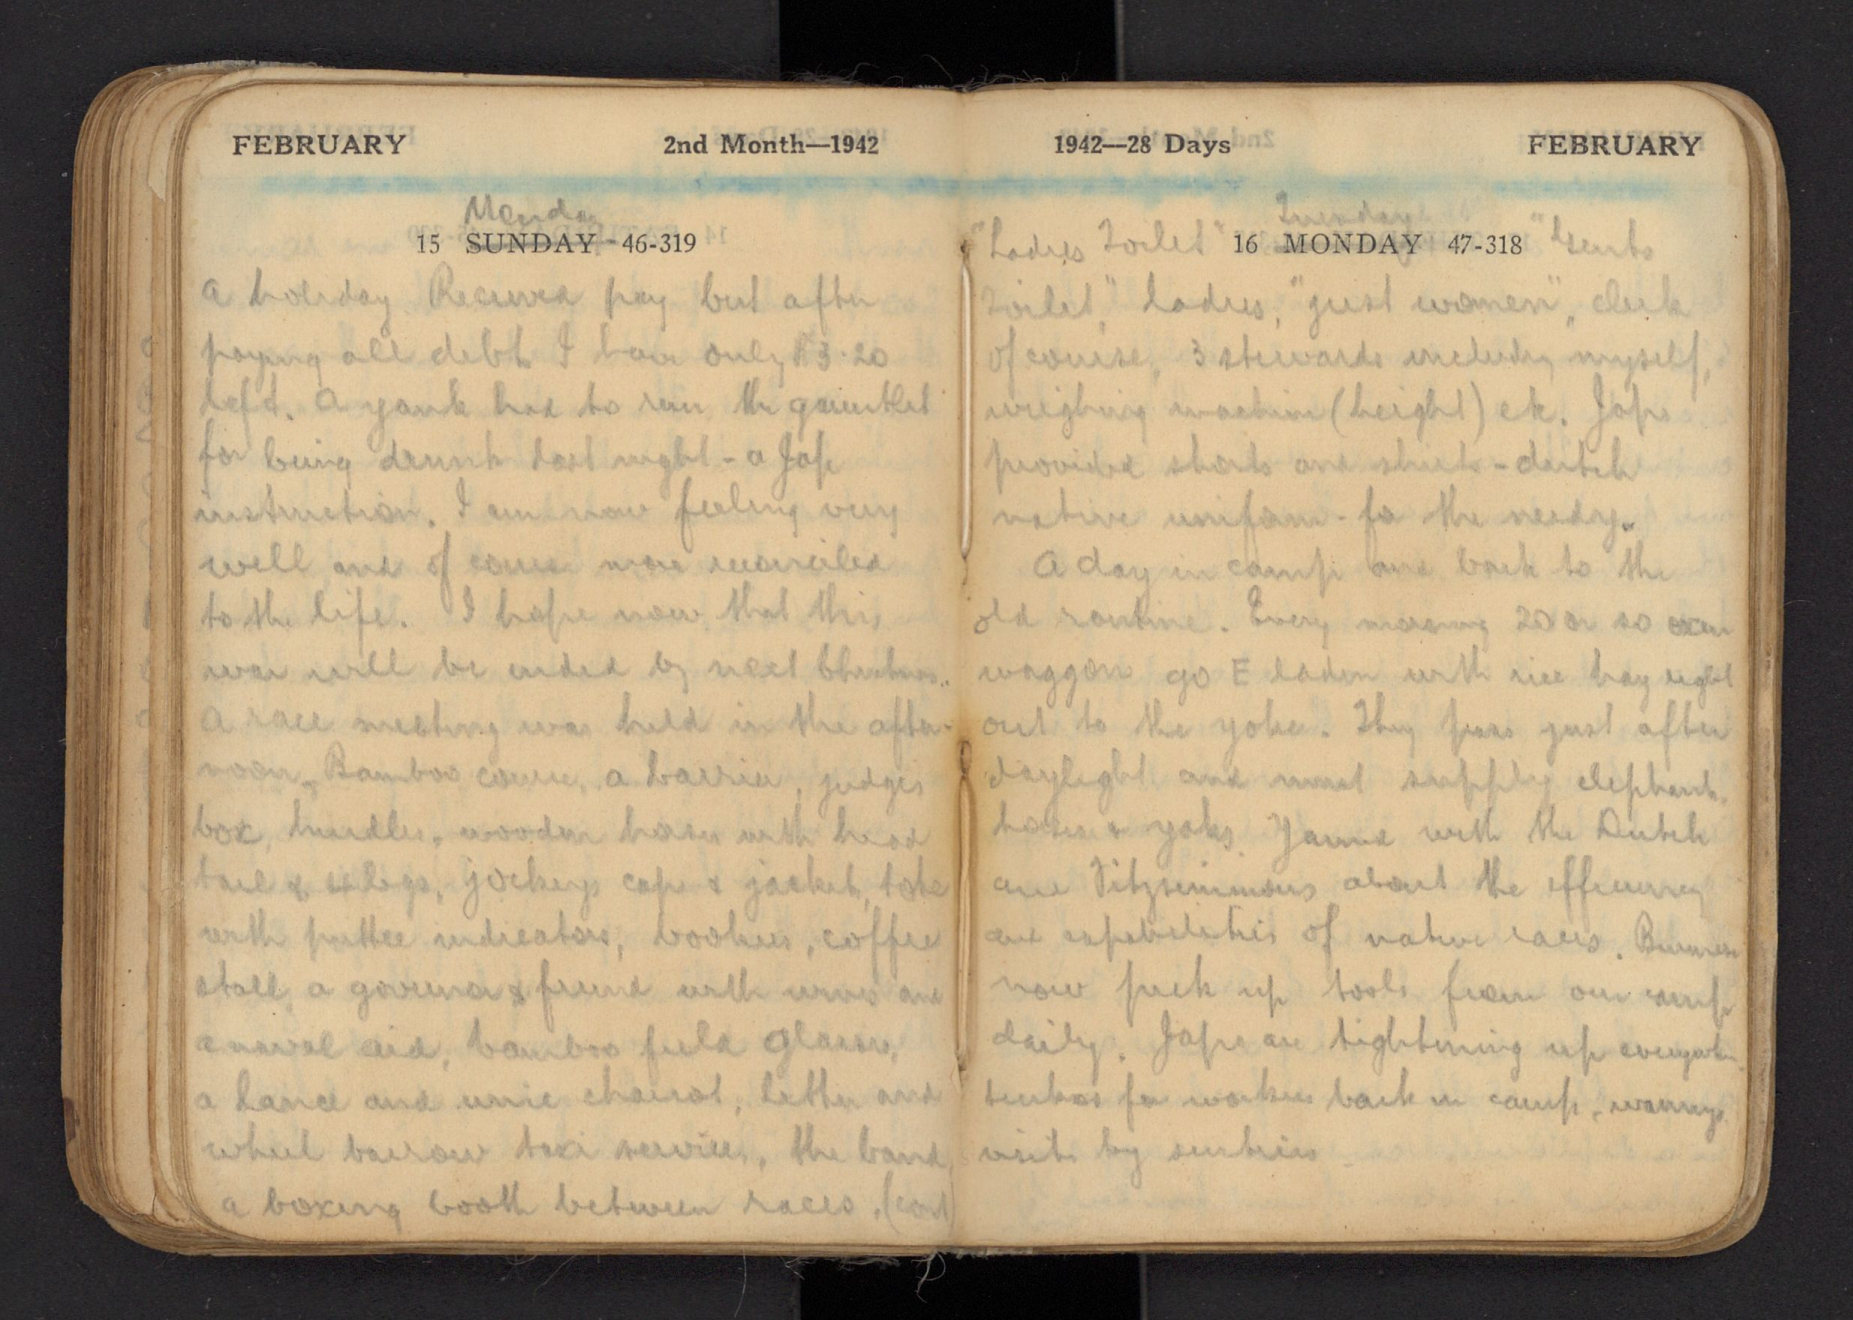 FEBRUARY 2nd Month—1942
Monday
15 SUNDAY 46-319
A holiday. Received pay but after
paying all debts I have only R3.20
left. A yank had to run the gauntlet
for being drunk last night - a Jap
instruction. I am now feeling very
well and of course more reconciled
to the life. I hope now that this
war will be ended by next Christmas.
A race meeting was held in the after-
noon. Bamboo course, a barrier, judges
box, hurdles, wooden horses with head
tail & 4 legs, jockeys caps & jacket, tote
with puttee indicators, bookies, coffee
stall, a governor & friend with wives and
a naval aid, bamboo field glasses,
a lance and unie chariot, litter and
wheel barrow taxi services, the band,
a boxing booth between races, (cont)
1942—28 Days FEBRUARY
Tuesday
16 MONDAY 47-318
"Ladies Toilet" "Gents
Toilet", Ladies, "just women", clerk
of course, 3 stewards including myself,
weighing machine (height) etc. Japs
provided shorts and shirts - dutch
native uniform - for the needy.
A day in camp and back to the
old routine. Every morning 20 or so oxen
waggons go E laden with rice hay right
out to the yoke. They pass just after
daylight and must supply elephants,
horses & yaks. Yarned with the Dutch
and Fitzsimmons about the efficiency
and capabilities of native races. Burmese
now pick up tools from our camp
daily. Japs are tightening up everywhere
tenkos for workers back in camp, warnings
visits by sentries